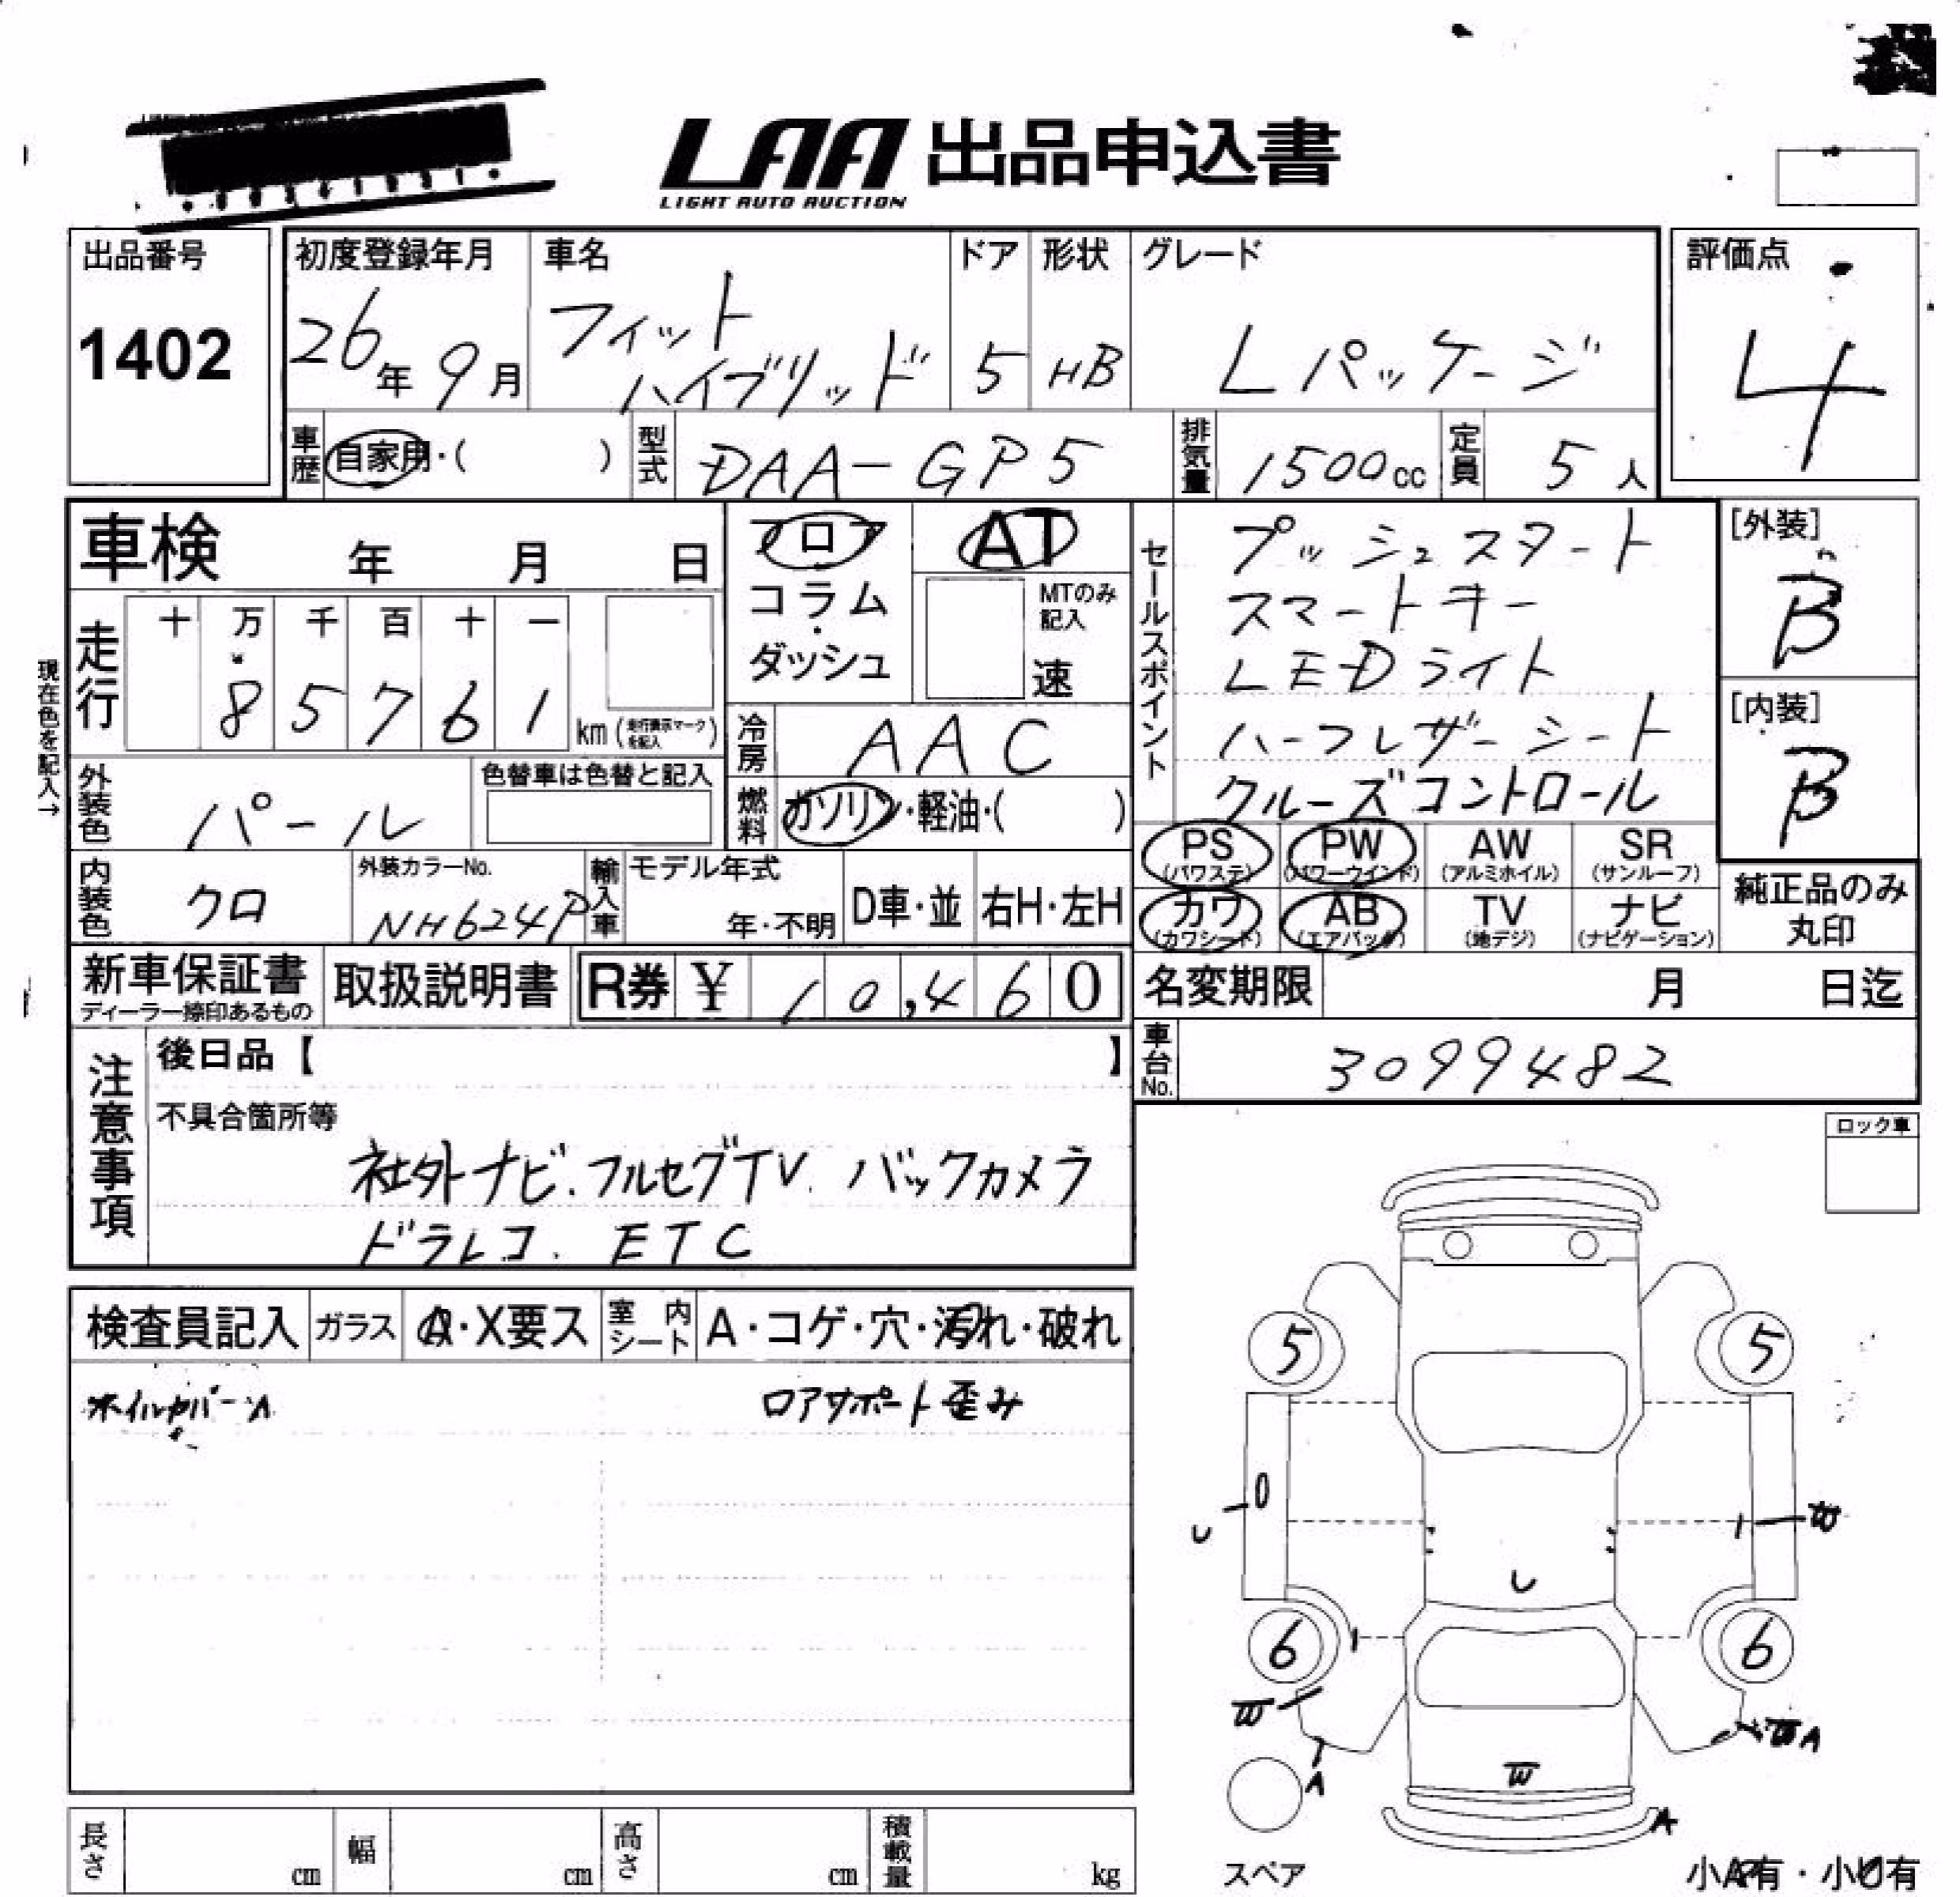 LAA 出品申込書
LIGHT AUTO AUCTION
出品番号
1402
初度登録年月
26年 9月
車名
フィット
ハイブリッド
ドア
5
形状
HB
グレード
Lパッケージ
評価点
4
車歴 自家用・( )
型式 DAA-GP5
排気量 1500cc
定員 5人
車検 年 月 日
フロア
コラム・
ダッシュ
AT
MTのみ
記入
速
走行
十 万 千 百 十 一
8 5 7 6 1 km(走行表示マークを記入)
現在色を記入→
冷房 AAC
燃料 ガソリン・軽油・( )
外装色 パール
色替車は色替と記入
内装色 クロ
外装カラーNo.
NH624P
輸入車 モデル年式
年・不明
D車・並
右H・左H
セールスポイント
プッシュスタート
スマートキー
LEDライト
ハーフレザーシート
クルーズコントロール
[外装]
B
[内装]
B
PS (パワステ)
PW (パワーウインド)
AW (アルミホイル)
SR (サンルーフ)
カワ (カワシート)
AB (エアバック)
TV (地デジ)
ナビ (ナビゲーション)
純正品のみ
丸印
新車保証書
ディーラー捺印あるもの
取扱説明書
R券 ¥ 10,460
名変期限 月 日迄
車台No. 3099482
注意事項
後日品【 】
不具合箇所等
社外ナビ.フルセグTV.バックカメラ
ドラレコ. ETC
ロック車
検査員記入
ガラス A・X要ス
室内シート A・コゲ・穴・汚れ・破れ
ホイルカバーA
ロアサポート歪み
5 5
U W
U
6 6
W
A
W A
W
A
スペア
小A有・小U有
長さ cm
幅 cm
高さ cm
積載量 kg